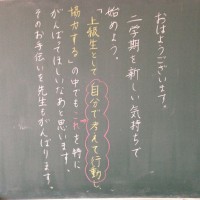 おはようございます。
二学期を新しい気持ちで
始めよう。
「上級生として自分で考えて行動し、
協力する」の中でもこれを特に
がんばってほしいなあと思います。
そのお手伝いを先生もがんばります。